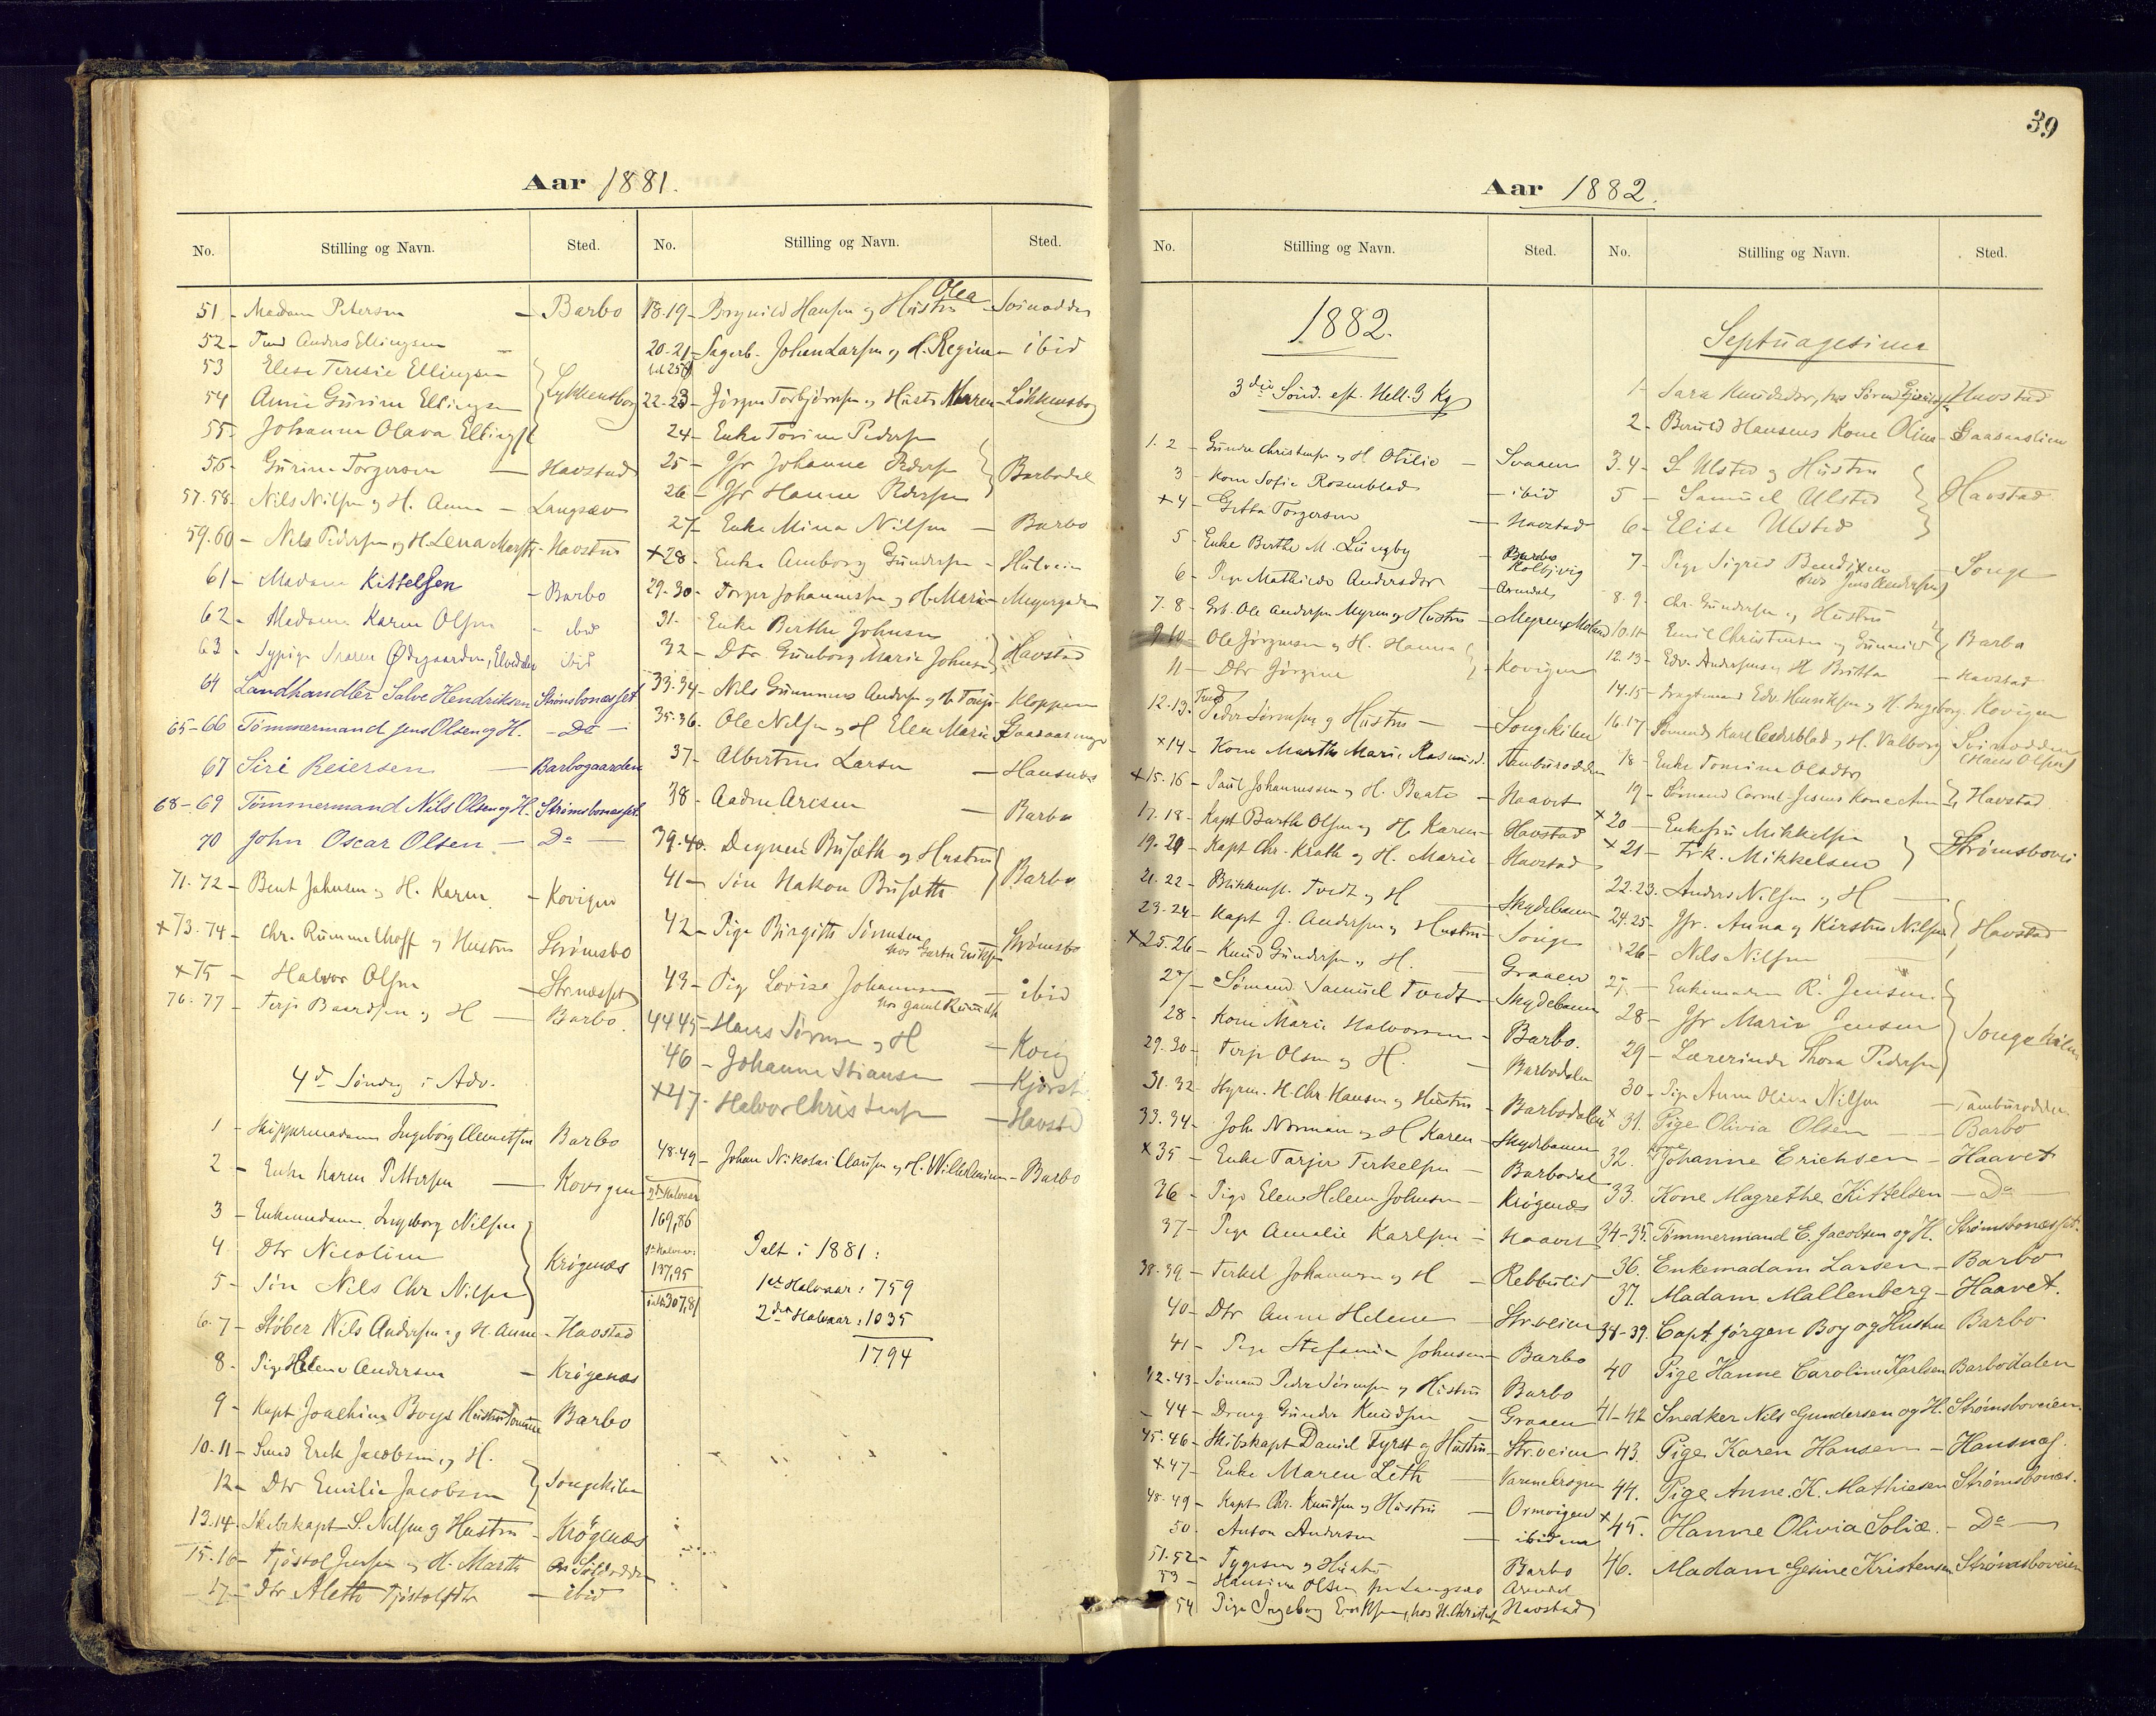 Aar 1881.
No. Stilling og Navn. Sted.
51 - Madam Petersen - Barbo
52 - Tmd Anders Ellingsen
53 Elise Teresie Ellingsen
54 Anne Gurine Ellingsen Lykkensborg
55 - Johanne Olava Ellings
56 - Gurine Torgersen - Havstad
57.58 - Nils Nilsen og H. Anna - Langsæv
59.60 - Nils Pedersen og H. Lena - Havstad
61 - Madam Kittelsen - Barbo
62 - Madame Karen Olsen - ibid
63 - Sypige Maren Ødegaarden, ibid
64 Landhandler Salve Hendriksen Strømsbonæsset
65-66 Tømmermand Jens Olsen og H. - Do -
67 Siri Reiersen - Barbogaarden
68-69 Tømmermand Nils Olsen og H. Strømsbonæsset
70 John Oscar Olsen - Do -
71.72 - Bent Johnsen og H. Karen - Kovigen
+73.74 - Chr. Rummelhoff og Hustru Strømsbo
+75 - Halvor Olsen - Str.næsset
76.77 - Terje Baardsen og H - Barbo.
4de Søndag i Adv.
1 - Skippermadam Ingeborg Clemetsen Barbo
2 - Enke Karen Pettersen - Kovigen
3 - Enkemadam Ingeborg Nilsen
4 - Dtr Nicoline Krøgenæs
5 - Søn Nils Chr Nilsen
6.7 - Støber Nils Andersen og H. Anne - Havstad
8 - Pige Helene Andersen - Krøgenæs
9 - Kapt Joachim Boys Hustru Tomine Barbo
10.11 - Smed Erik Jacobsen og H.
12 - Dtr Emilie Jacobsen Songekilen
13.14 - Skibskapt S. Nilsen og Hustru - Krøgenæs
15.16 - Tjøstol Jensen og H. Marthe
17 - Dtr Alette Tjøstolsdtr - ibid
No. Stilling og Navn. Sted.
18.19 - Brynild Hansen og Hustru Olea - Svinodden
20.21 - Sagerb. Johan Larsen og H. Regine - ibid
22.23 - Jørgen Torbjørnsen og Hustr Maren - Løkkensborg
24 - Enke Torine Pedersen
25 - Jfr Johanne Pedersen Barbodal
26 - Jfr Hanne Pedersen
27 - Enke Mina Nilsen - Barbo
+28 - Enke Amborg Gundersen
29.30 - Torger Johannesen og H. Marie
31 - Enke Berthe Johnsen
32 - Dtr Gunborg Marie Johnsen Havstad
33.34 - Nils Gunmunds Andersen og H. - Kloppene
35.36 - Ole Nilsen og H Elen Marie
37 - Albertine Larsen - Hansnæs
38 - Aadne Aresen - Barbo
39.40 - Degnen Busæth og Hustru
41 - Søn Hakon Busæth Barbo
42 - Pige Birgitte Simonsen Strømsbo
43 - Pige Lovise Johannesen - ibid
44.45 - Hans Sørensen og H - Kovig
46 - Johanne Stiansen
+47 - Halvor Christensen - Havstad
48.49 - Johan Nikolai Clausen og H. Wilhelmine - Barbo
2det Halvaar
169,86
1ste Halvaar:
137,95
ialt 307,81
Ialt i 1881:
1ste Halvaar: 759
2det Halvaar: 1035
1794
39
Aar 1882.
No. Stilling og Navn. Sted.
1882.
3die Sønd. eft. Hell. 3 Kg
1.2 - Gunder Christensen og H Otilie - Svaaen
3 - Kone Sofie Rosenblad - ibid
+4 - Gitta Torgersen - Havstad
5 - Enke Berthe M. Lungby - Barbo Kolbjvig
6 - Pige Mathilde Andersdtr - Arendal
7.8 - Grb. Ole Andersen Myren og Hustru - Myren, Moland
9.10 - Ole Jørgensen og H. Hanna
11 - Dtr Jørgine - Kovigen
12.13 - Tmd Peder Sørensen og Hustru - Songekilen
+14 - Kone Marthe Marie Rasmusd. Tamburodden
+15.16 - Paul Johannessen og H. Beate - Haavet
17.18 - Kapt Barth Olsen og H. Karen - Havstad
19.20 - Kapt Chr. Krath og H. Marie - Havstad
21.22 - Blikkensl. Tvedt og H - Skydebanen
23.24 - Kapt J. Andersen og Hustru - Songe
+25.26 - Knud Gundersen og H. - Graaen
27 - Sømand Samuel Tvedt - Skydebanen
28 - Kone Marie Halvorsen - Barbo.
29.30 - Terje Olsen og H. - Barbodalen
31.32 - Styrm. H. Chr Hansen og Hustru - Barbodalen
33.34 - John Norman og H Karen - Skydebanen
+35 - Enke Tarjer Terkelsen - Barbodal
36 - Pige Elen Helene Johnsen - Krøgenæs
37 - Pige Amalie Karlsen - Haavet
38.39 - Terkel Johannesen og H - Rebbulid
40 - Dtr Anne Helene - Str.veien
41 - Pige Stefanie Johnsen - Barbo
42.43 - Sømand Peder Sørensen og Hustru Barbo
44 - Dreng Gunder Knudsen - Graaen
45.46 - Skibskapt Daniel Fyrst og Hustru - Str.veien
+47 - Enke Maren Leth
48.49 - Kapt Chr. Knudsen og Hustru - Ormvigen
50 - Anton Andersen - ibidem
51.52 - Tygesen og Hustru Barbo
53 - Hansine Olsen fra Langsæv Arendal
54 Pige Ingeborg Eriksen, hos H. Christof Havstad
No. Stilling og Navn. Sted.
Septuagesima
1 - Sara Knudsdtr, hos Søren Havstad
2 - Berulfd Hansens Kone Oline - Gaasaaslien
3.4 - S Ulsted og Hustru
5 - Samuel Ulsted Havstad
6 - Elise Ulsted
7 - Pige Sigrid Bendixen - Songe
hos Jens Andersen)
8.9 - Chr. Gundersen og Hustru
10.11 - Emil Christensen og Gunnild Barbo
12.13 - Edv. Andersen og H Britta - Havstad
14.15 - Fragtemand Edv. Henriksen og H. Ingeborg. Kovigen
16.17 Sømand Karl Cederblad og H. Valborg Svinodden
(Hans Olsen)
18 - Enke Tomine Olsdtr
19 - Sømand Cornel. Jesens Kone Anne Havstad
+20 - Enkefru Mikkelsen
+21 - Frk. Mikkelsen Strømsbovei
22.23. Anders Nilsen og H
24.25 - Jfr. Anna og Kirstine Nilsen Havstad
26 - Nils Nilsen
27 - Enkemadam R. Jensen
28 - Jfr Marie Jensen Songekilen
29 - Lærerinde Thora Pedersen
30 - Pige Anne Oline Nilsen - Tamburodden
+31. Pige Olivia Olsen - Barbo
32. Johanne Erichsen - Haavet
33. Kone Magrethe Kittelsen - Do
34-35. Tømmermand E. Jacobsen og H. Strømsbonæsset.
36. Enkemadam Larsen - Barbo
37. Madam Mallenberg - Haavet.
38-39. Capt. Jørgen Boy og Hustru Barbo
40 Pige Hanne Caroline Karlsen Barbodalen
41-42 Snedker Nils Gundersen og H. Strømsboveien.
43. Pige Karen Hansen - Hansnæs.
44. Pige Anne. K. Mathiesen Strømsbonæs.
+45. Hanne Olivia Solie. - Do -
46. Madam Gesine Kristensen Strømsboveien